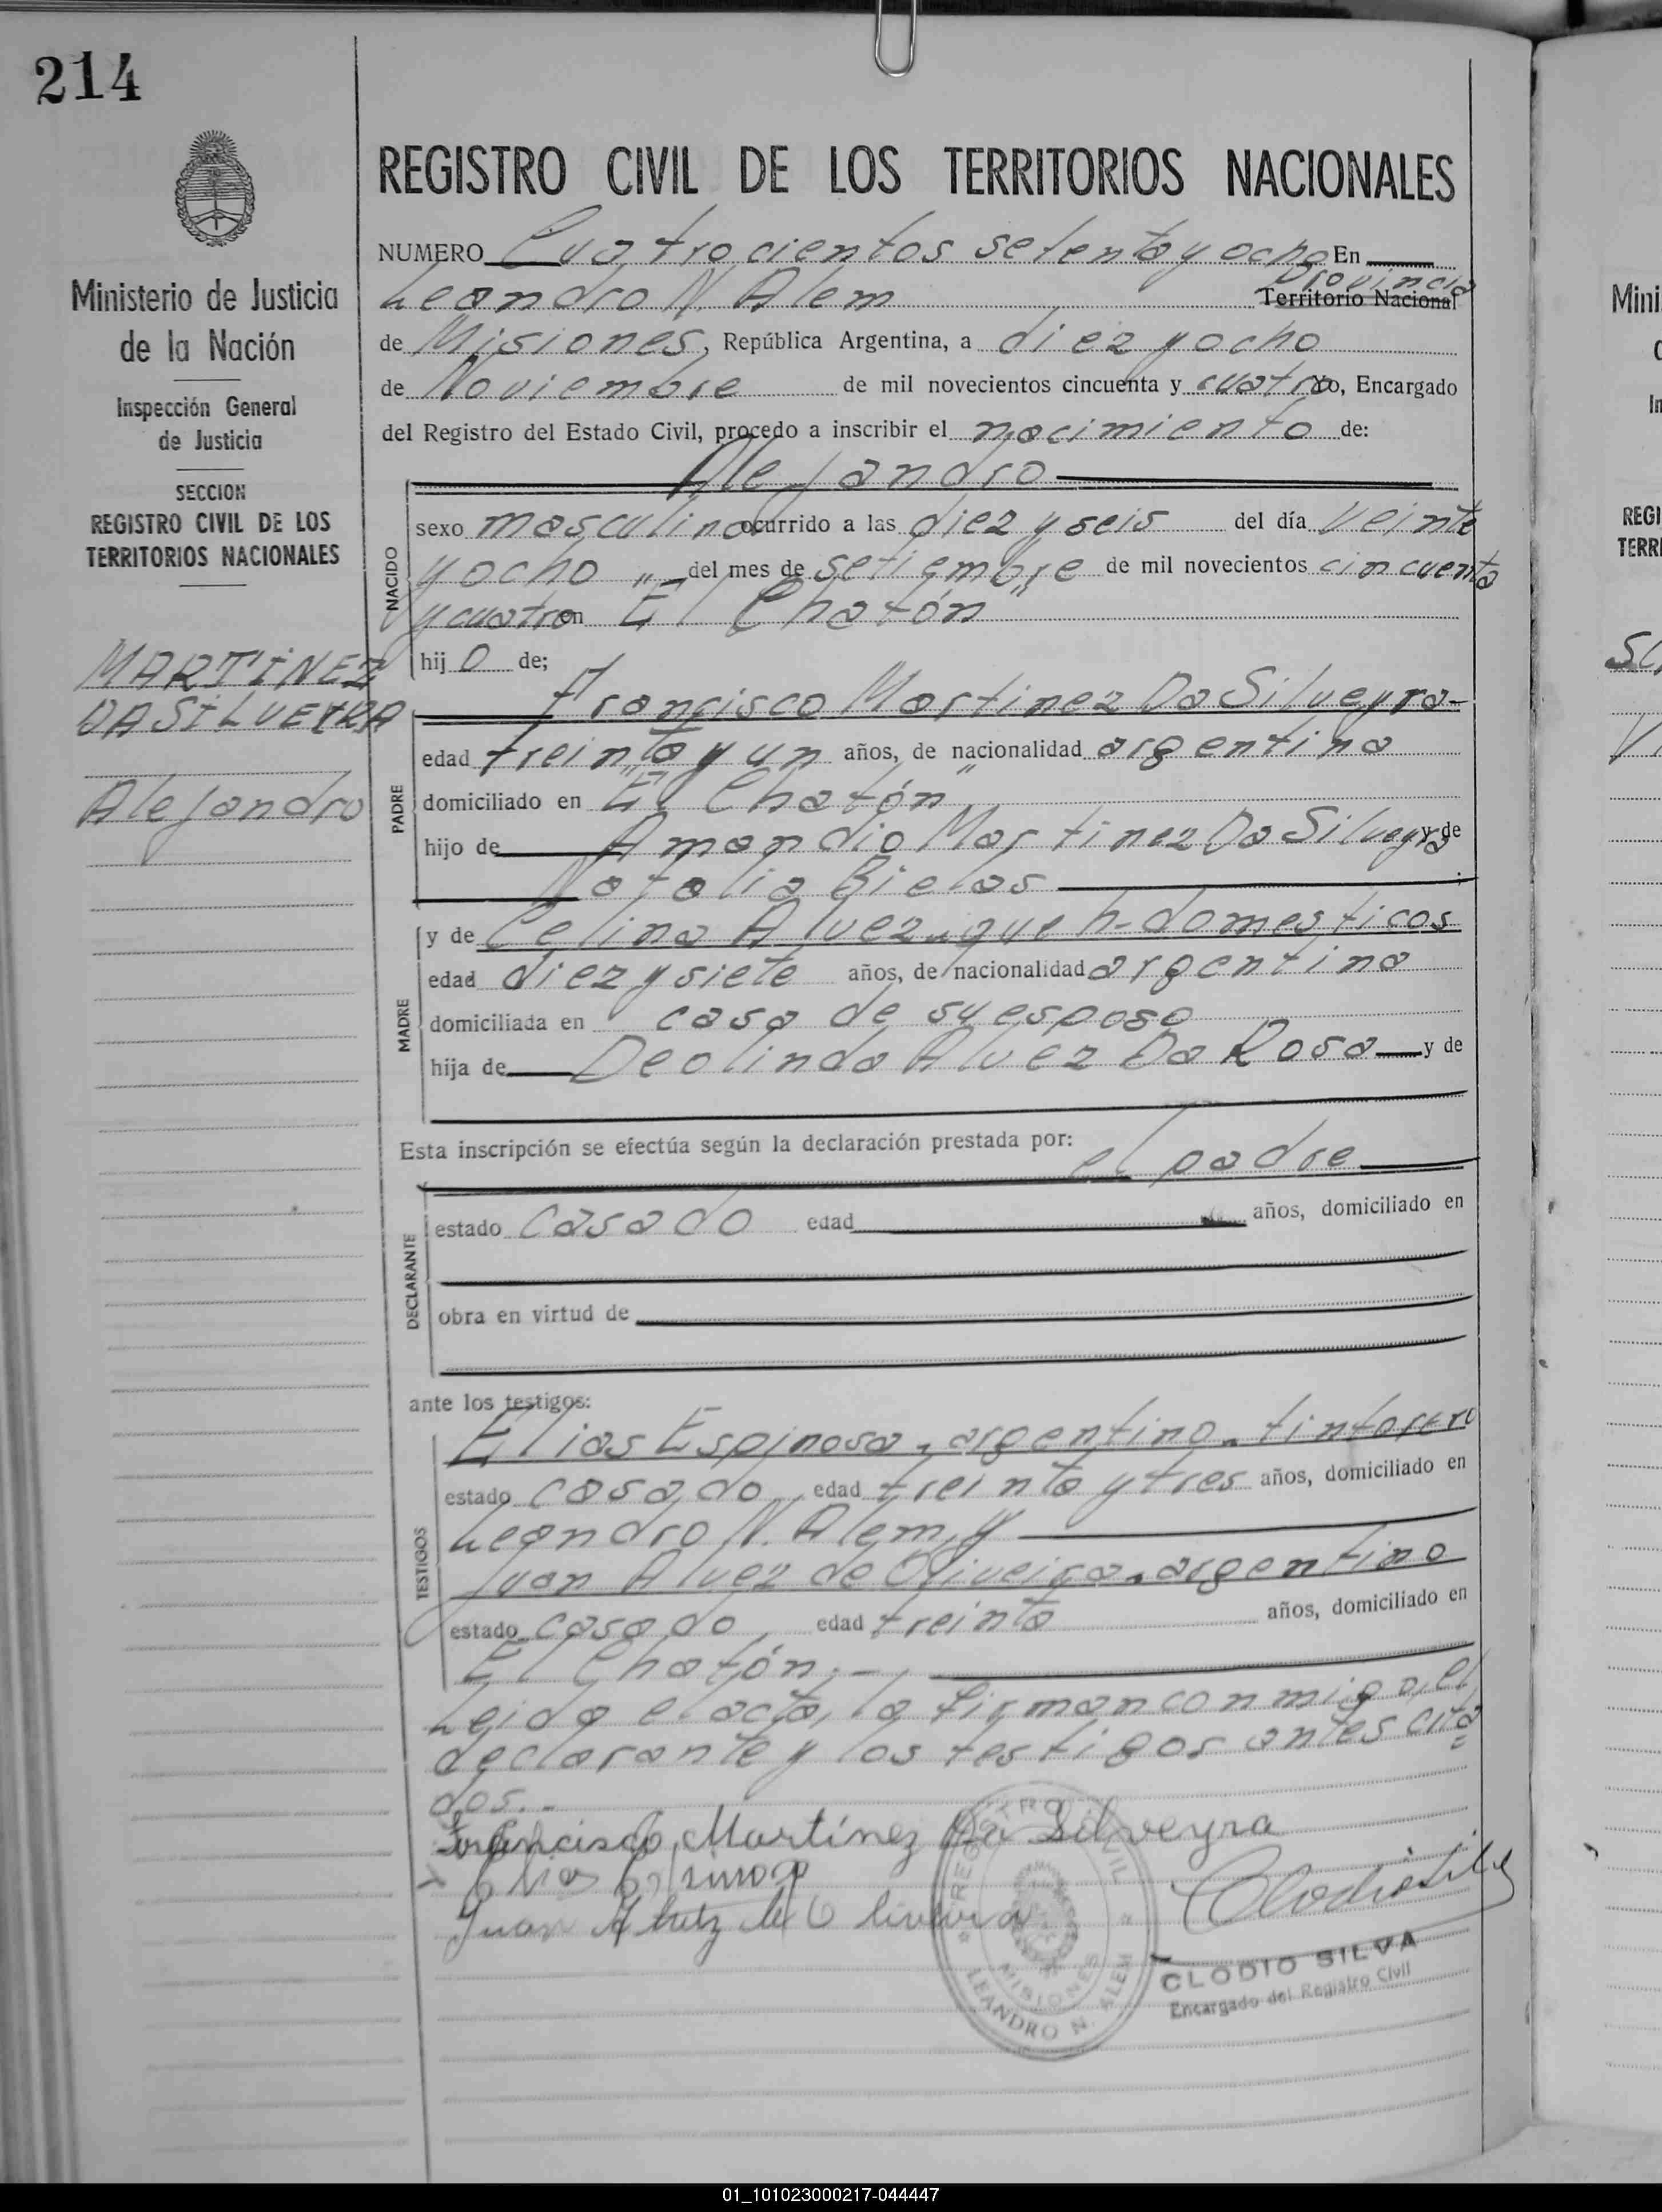 214
REGISTRO CIVIL DE LOS TERRITORIOS NACIONALES
NUMERO Cuatrocientos setenta y ocho En
Leandro N. Alem Provincia Territorio Nacional
de Misiones, República Argentina, a diez y ocho
de Noviembre de mil novecientos cincuenta y cuatro Yo, Encargado
del Registro del Estado Civil, procedo a inscribir el nacimiento de:
Alejandro
sexo masculino ocurrido a las diez y seis del día veinte
y ocho del mes de setiembre de mil novecientos cincuenta
y cuatro en "El Chatón"
hij o de;
Francisco Martinez Da Silveyra-
edad treinta y un años, de nacionalidad argentina
domiciliado en "El Chatón"
hijo de Amandio Martinez Da Silveyra y de
Natalia Bielas
y de Celina Alvez-que h-domesticos
edad diez y siete años, de nacionalidad argentina
domiciliada en casa de su esposo
hija de Deolinda Alvez Da Rosa y de
Esta inscripción se efectúa según la declaración prestada por:
el padre
estado casado edad años, domiciliado en
obra en virtud de
ante los testigos:
Elias Espinosa, argentino, tintorero
estado casado edad treinta y tres años, domiciliado en
Leandro N. Alem, y
Juan Alvez de Oliveira, argentino
estado casado edad treinta años, domiciliado en
El Chatón.-
Leida el acta, la firman conmigo, el
declarante y los testigos antes cita=
dos.-
Francisco Martínez Da Silveyra
Elias Espinosa
Juan Alvez de Oliveira
Clodio Silva
CLODIO SILVA
Encargado del Registro Civil
REGISTRO CIVIL
MISIONES
LEANDRO N. ALEM
Ministerio de Justicia
de la Nación
Inspección General
de Justicia
SECCION
REGISTRO CIVIL DE LOS
TERRITORIOS NACIONALES
MARTINEZ
DA SILVEYRA
Alejandro
NACIDO
PADRE
MADRE
DECLARANTE
TESTIGOS
Mini
REGI
TERR
01_101023000217-044447